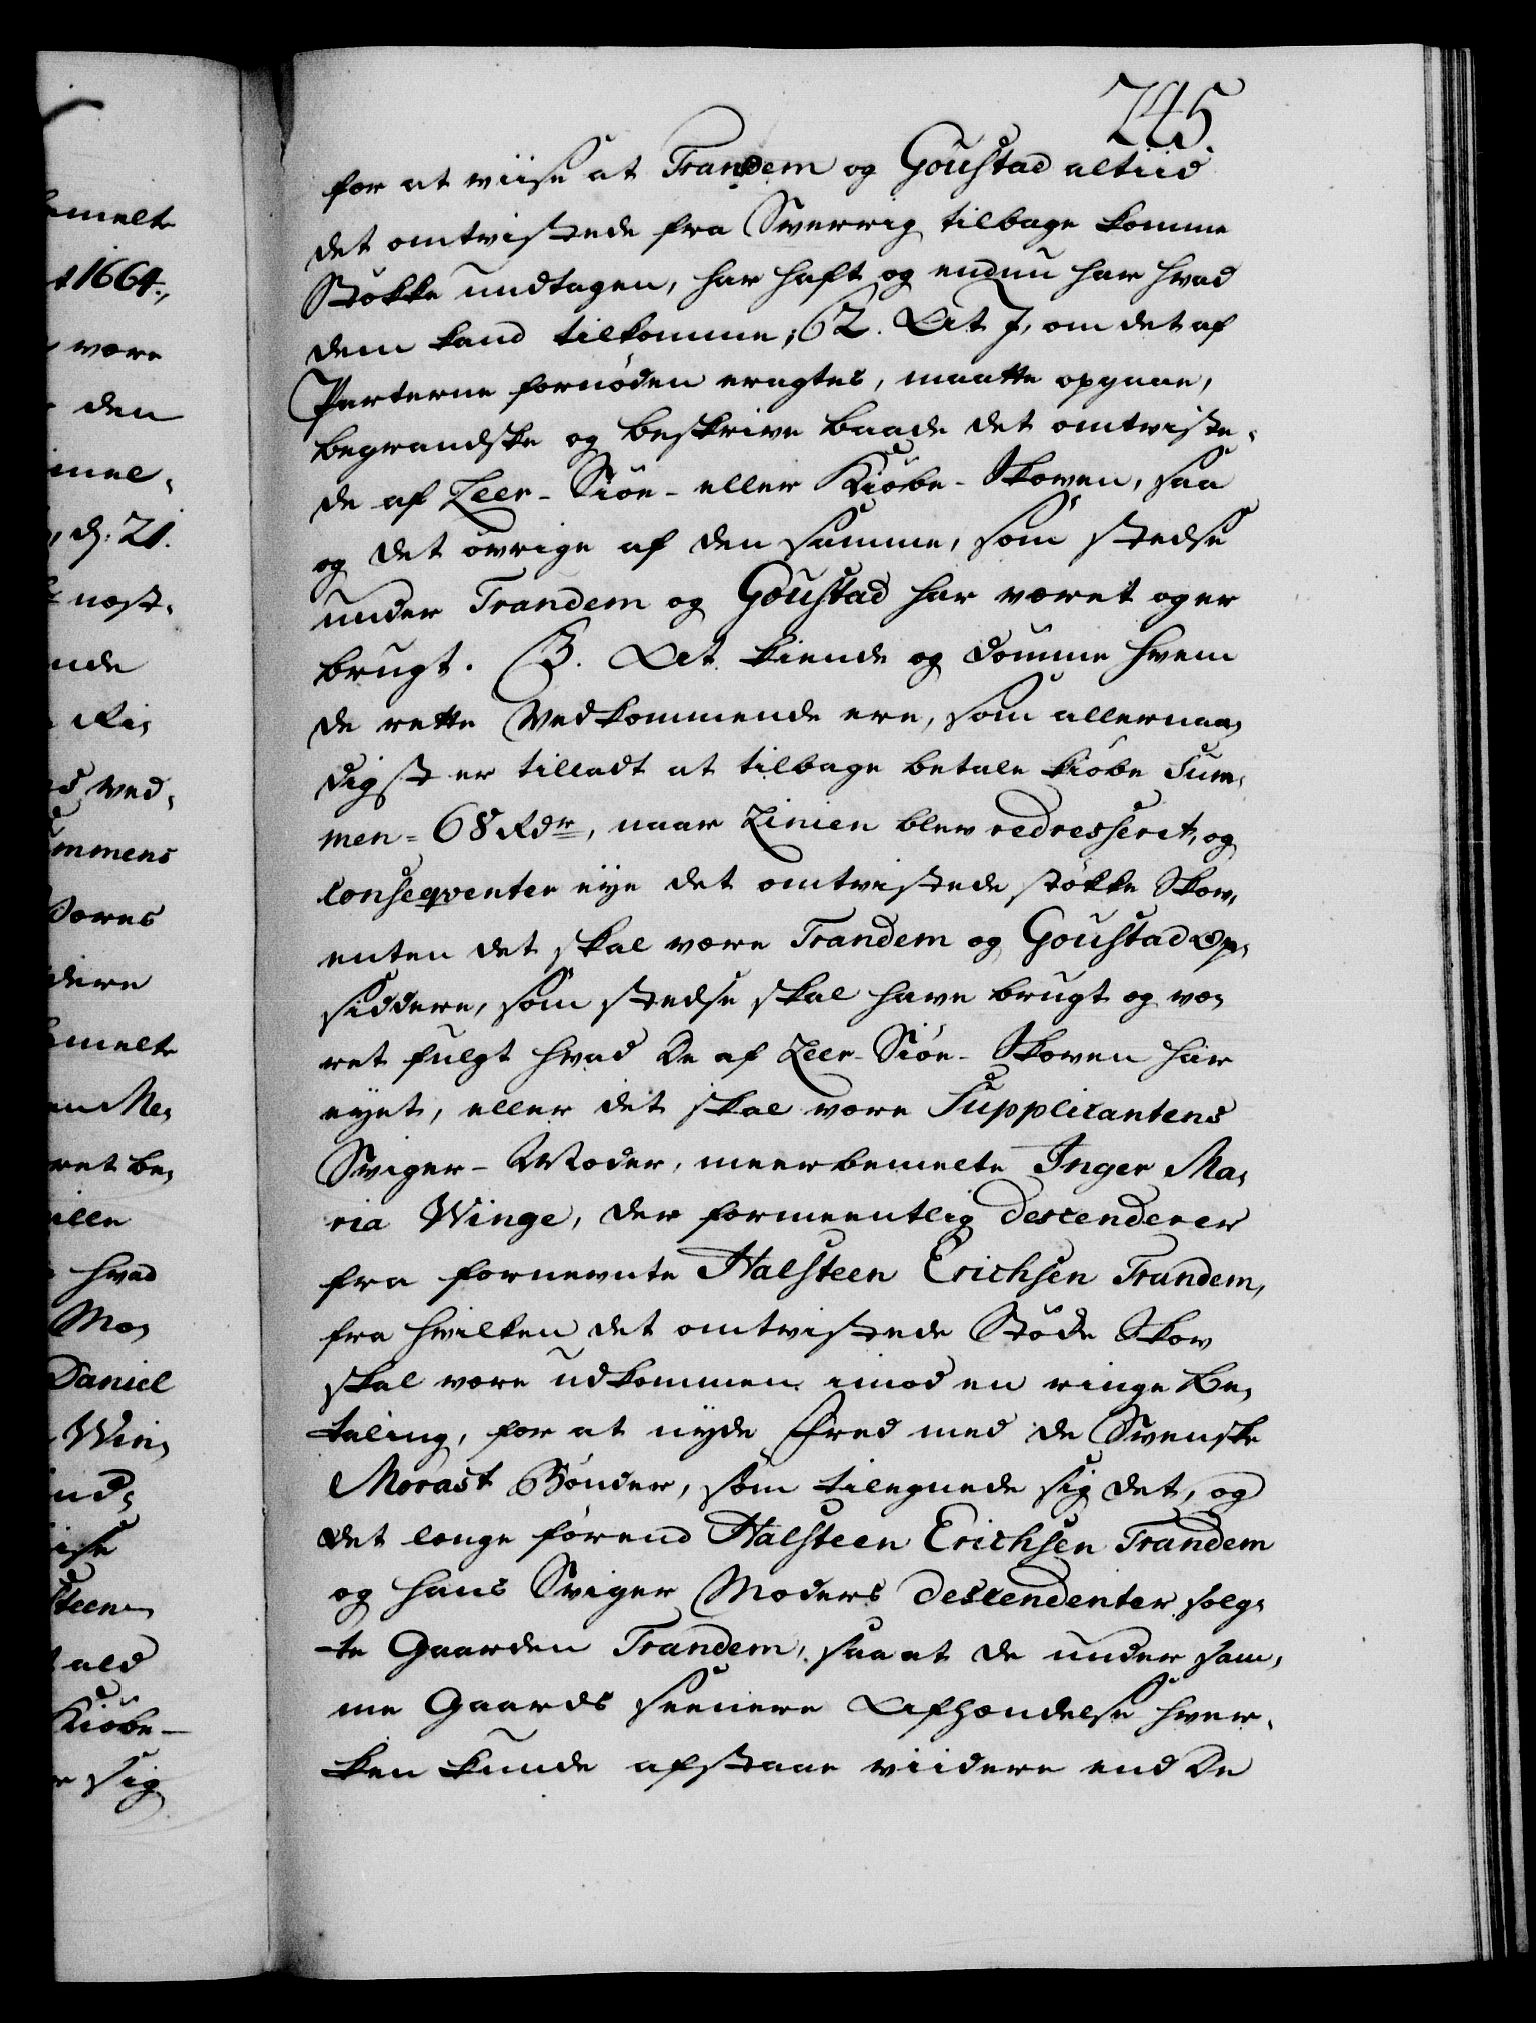 245.
for at viise at Trandem og Goustad altiid
det omtvistede fra Sverrig tilbage komme
Støkke undtagen, har haft og endnu har hvad
dem kand tilkomme; 2. At I, om det af
Parterne fornøden eragtes, maatte opgaae,
begrandske og beskrive baade det omtviste-
de af Leer-Siøe- eller Kiøbe-Skoven, saa
og det øvrige af den samme, som stedse
under Trandem og Goustad har været og er
brugt. 3. At kiende og dømme hvem
de rette Vedkommende ere, som allernaa-
digst er tilladt at tilbage betale kiøbe Sum-
men = 68 Rdr, naar Linien blev redresserit, og
conseqventer eye det omtvistede støkke Skov,
enten det skal være Trandem og Goustad Op-
siddere, som stedse skal have brugt og væ-
ret fulgt hvad De af Leer-Siøe-Skoven har
eyet, eller det skal være Supplicantens
Sviger-Moder, meerbemelte Inger Ma-
ria Winge, der formeentlig descenderer
fra fornevnte Halsteen Erichsen Trandem,
fra hvilken det omtvistede Støkke Skov
skal være udkommen imod en ringe Be-
taling, for at nyde Fred med de Svenske
Morast Bønder, som tilegnede sig det, og
det længe førend Halsteen Erichsen Trandem
og hans Sviger Moders Descendenter solg-
te Gaarden Trandem, saa at de under sam-
me Gaards seenere Afhændelse hver-
ken kunde afstaae viidere end De